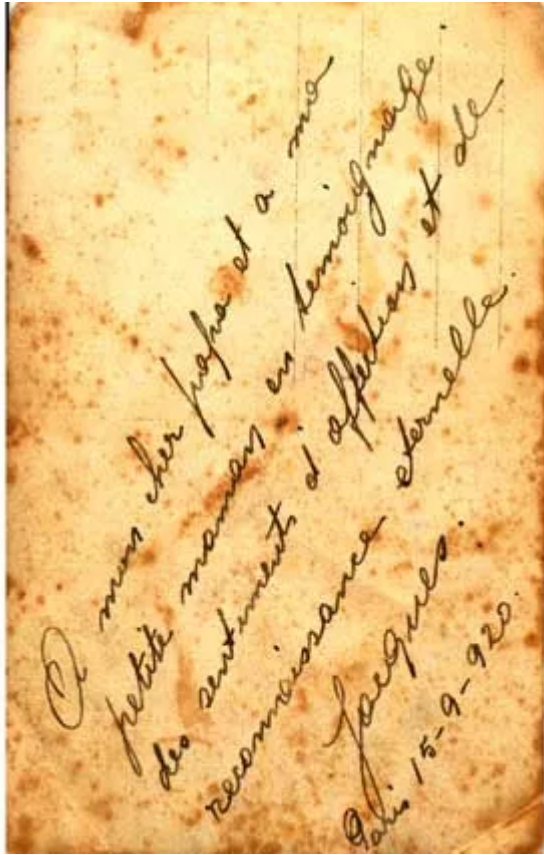 A mon cher papa et a ma
petite maman en temoignage
des sentiments d'affection et de
reconnaissance eternelle.
Jacques.
Paris 15-9-920.